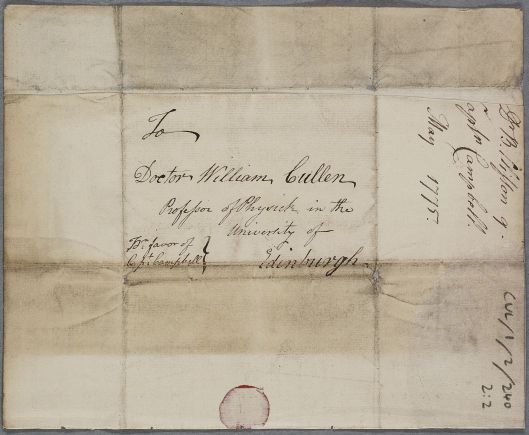 To
Doctor William Cullen
Professor of Physick in the
University of
Edinburgh.
Pr. favor of
Capt. Campbell
Campbell.
May 1775
CUL/1/2/240
2:2